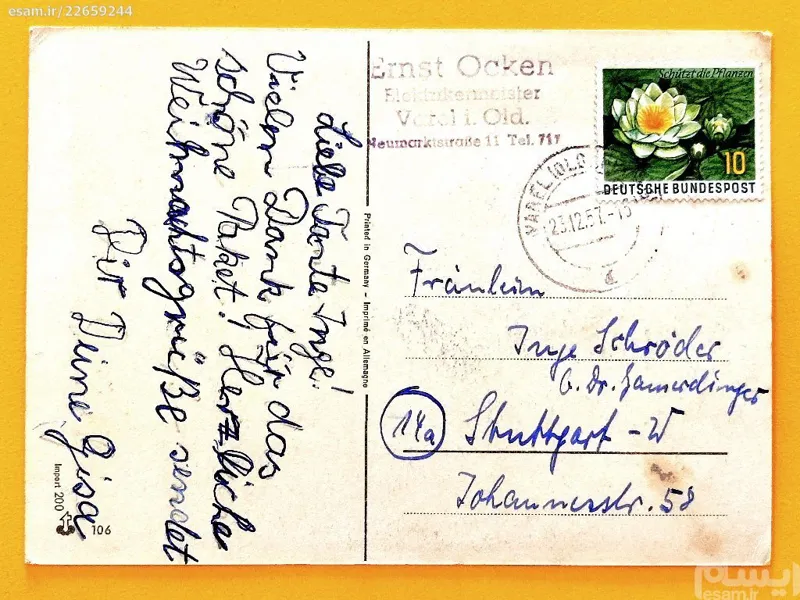 esam.ir/22659244
Liebe Tante Inge!
Vielen Dank für das
schöne Paket! Herzliche
Weihnachtsgrüße sendet
Dir Deine Gisa
Printed in Germany – Imprimé en Allemagne
Import 200
106
Ernst Ocken
Elektrikermeister
Varel i. Old.
Neumarktstraße 11 Tel. 717
Schützt die Pflanzen
10
DEUTSCHE BUNDESPOST
VAREL (OLDB
23.12.57.-18
d
Fräulein
Inge Schröder
b. Dr. Gamerdinger
14a Stuttgart-W
Johannesstr. 58
ایسام
esam.ir